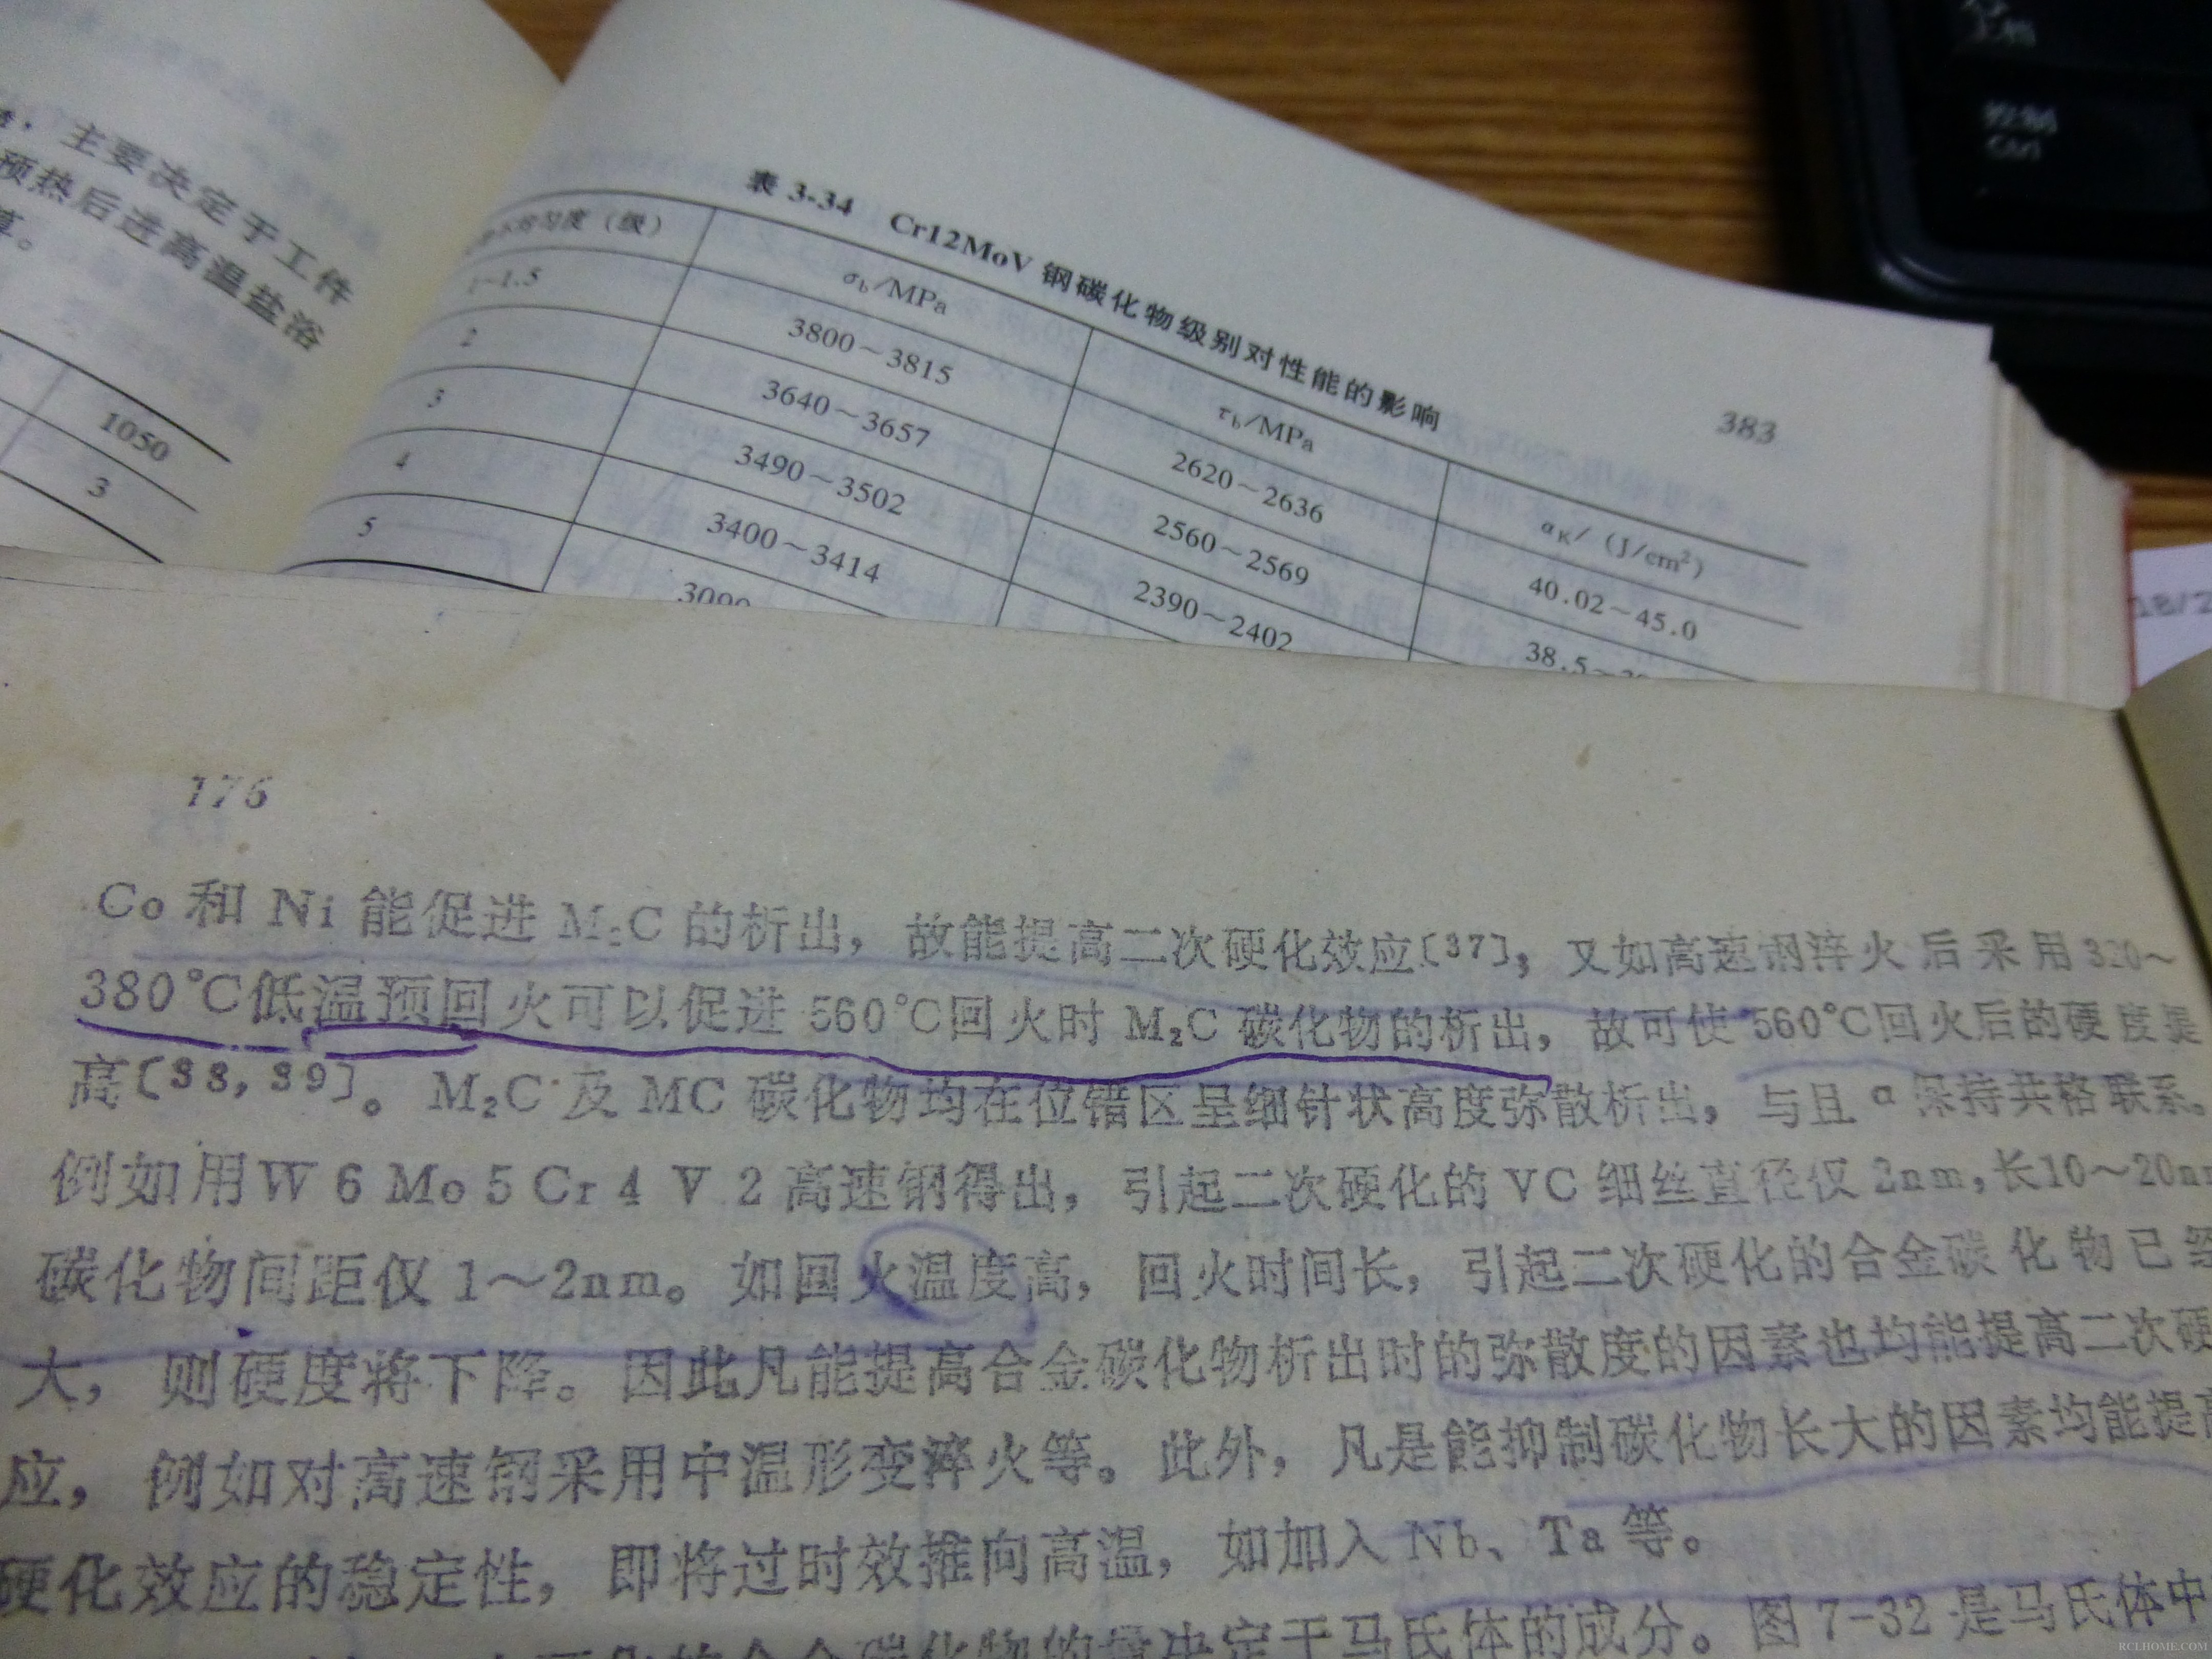 主要决定于工件
预热后进高温盐浴
1050
3
383
表 3-34 Cr12MoV 钢碳化物级别对性能的影响
匀度（级） σb/MPa τb/MPa αK/（J/cm²）
1~1.5 3800～3815 2620～2636 40.02～45.0
2 3640～3657 2560～2569 38.5～
3 3490～3502 2390～2402
4 3400～3414
5 3090
控制
Ctrl
176
Co 和 Ni 能促进 M₂C 的析出，故能提高二次硬化效应〔37〕；又如高速钢淬火后采用 320～
380℃低温预回火可以促进 560℃回火时 M₂C 碳化物的析出，故可使 560℃回火后的硬度提
高〔38,39〕。M₂C 及 MC 碳化物均在位错区呈细针状高度弥散析出，与且 α 保持共格联系。
例如用W 6 Mo 5 Cr 4 V 2 高速钢得出，引起二次硬化的 VC 细丝直径仅 2nm，长10～20n
碳化物间距仅 1～2nm。如回火温度高，回火时间长，引起二次硬化的合金碳化物已
大，则硬度将下降。因此凡能提高合金碳化物析出时的弥散度的因素也均能提高二次硬
应，例如对高速钢采用中温形变淬火等。此外，凡是能抑制碳化物长大的因素均能提高
硬化效应的稳定性，即将过时效推向高温，如加入 Nb、Ta 等。
合金碳化物的量决定于马氏体的成分。图 7-32 是马氏体中
RCLHOME.COM